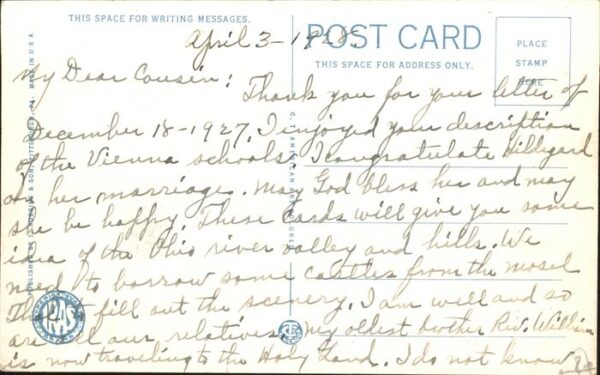 THIS SPACE FOR WRITING MESSAGES.
POST CARD
THIS SPACE FOR ADDRESS ONLY.
PLACE
STAMP
HERE
MADE IN U.S.A.
April 3-1928.
My Dear Cousin:
Thank you for your letter of
December 18-1927. I enjoyed your description
of the Vienna schools. I congratulate Hillegard
on her marriage. May God bless her and may
she be happy. These cards will give you some
idea of the Ohio river valley and hills. We
need to borrow some castles from the Mosel
to fill out the scenery. I am well and so
are all our relatives. My oldest brother Rev. William
is now traveling to the Holy Land. I do not know